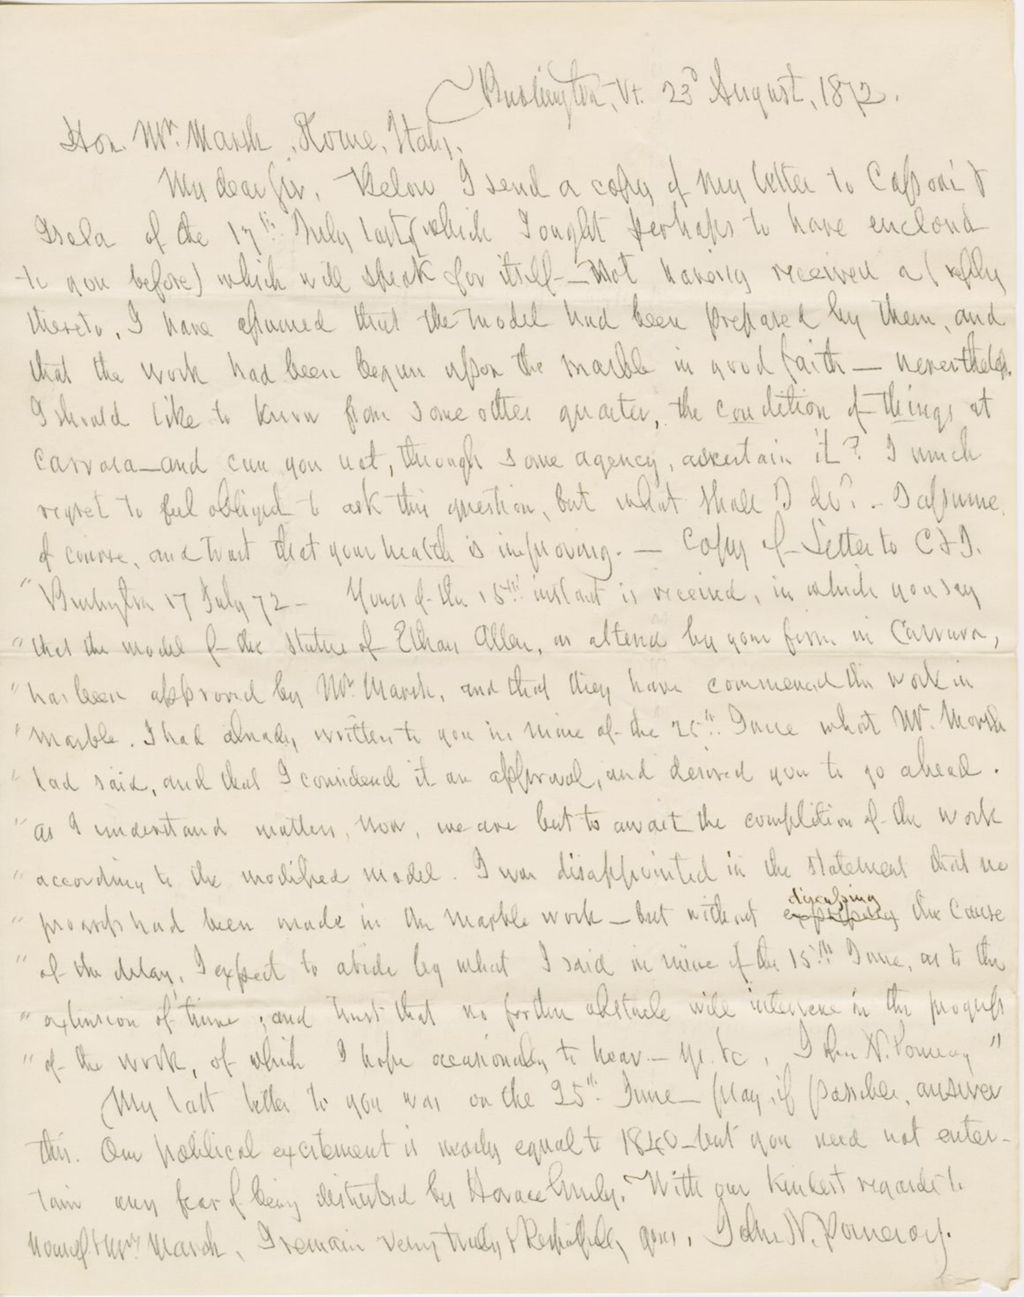 Burlington, Vt. 23d August, 1872.
Hon. Mr. Marsh, Rome, Italy.
My dear Sir, Below I send a copy of my letter to Cassoni &
Isola of the 17th July last (which I ought perhaps to have enclosed
to you before) which will speak for itself — Not having received a reply
thereto, I have assumed that the model had been prepared by them, and
that the work had been begun upon the marble in good faith — nevertheless,
I should like to know from some other quarter, the condition of things at
Carrara — and can you not, through some agency, ascertain it? I much
regret to feel obliged to ask this question, but what shall I do? - I assume,
of course, and trust that your health is improving. — Copy of Letter to C & I.
" Burlington 17 July 72 — Yours of the 15th instant is received, in which you say
" that the model of the statue of Ethan Allen, as altered by your firm in Carrara,
" has been approved by Mr. Marsh, and that they have commenced the work in
" marble. I had already written to you in mine of the 25th June what Mr. Marsh
" had said, and that I considered it an approval, and desired you to go ahead.
" As I understand matters, now, we are but to await the completion of the work
" according to the modified model. I was disappointed in the statement that no
" progress had been made in the marble work — but without discussing the cause
" of the delay, I expect to abide by what I said in mine of the 15th June, as to the
" extension of time; and trust that no further obstacle will intervene in the progress
" of the work, of which I hope occasionally to hear — yr. &c, John N. Pomeroy"
My last letter to you was on the 25th June — May, if possible, answer
this. Our political excitement is nearly equal to 1840 — but you need not enter-
tain any fear of being disturbed by Horace Greely. With our kindest regards to
yourself & Mrs Marsh, I remain very truly & Respectfully yours, John N. Pomeroy.